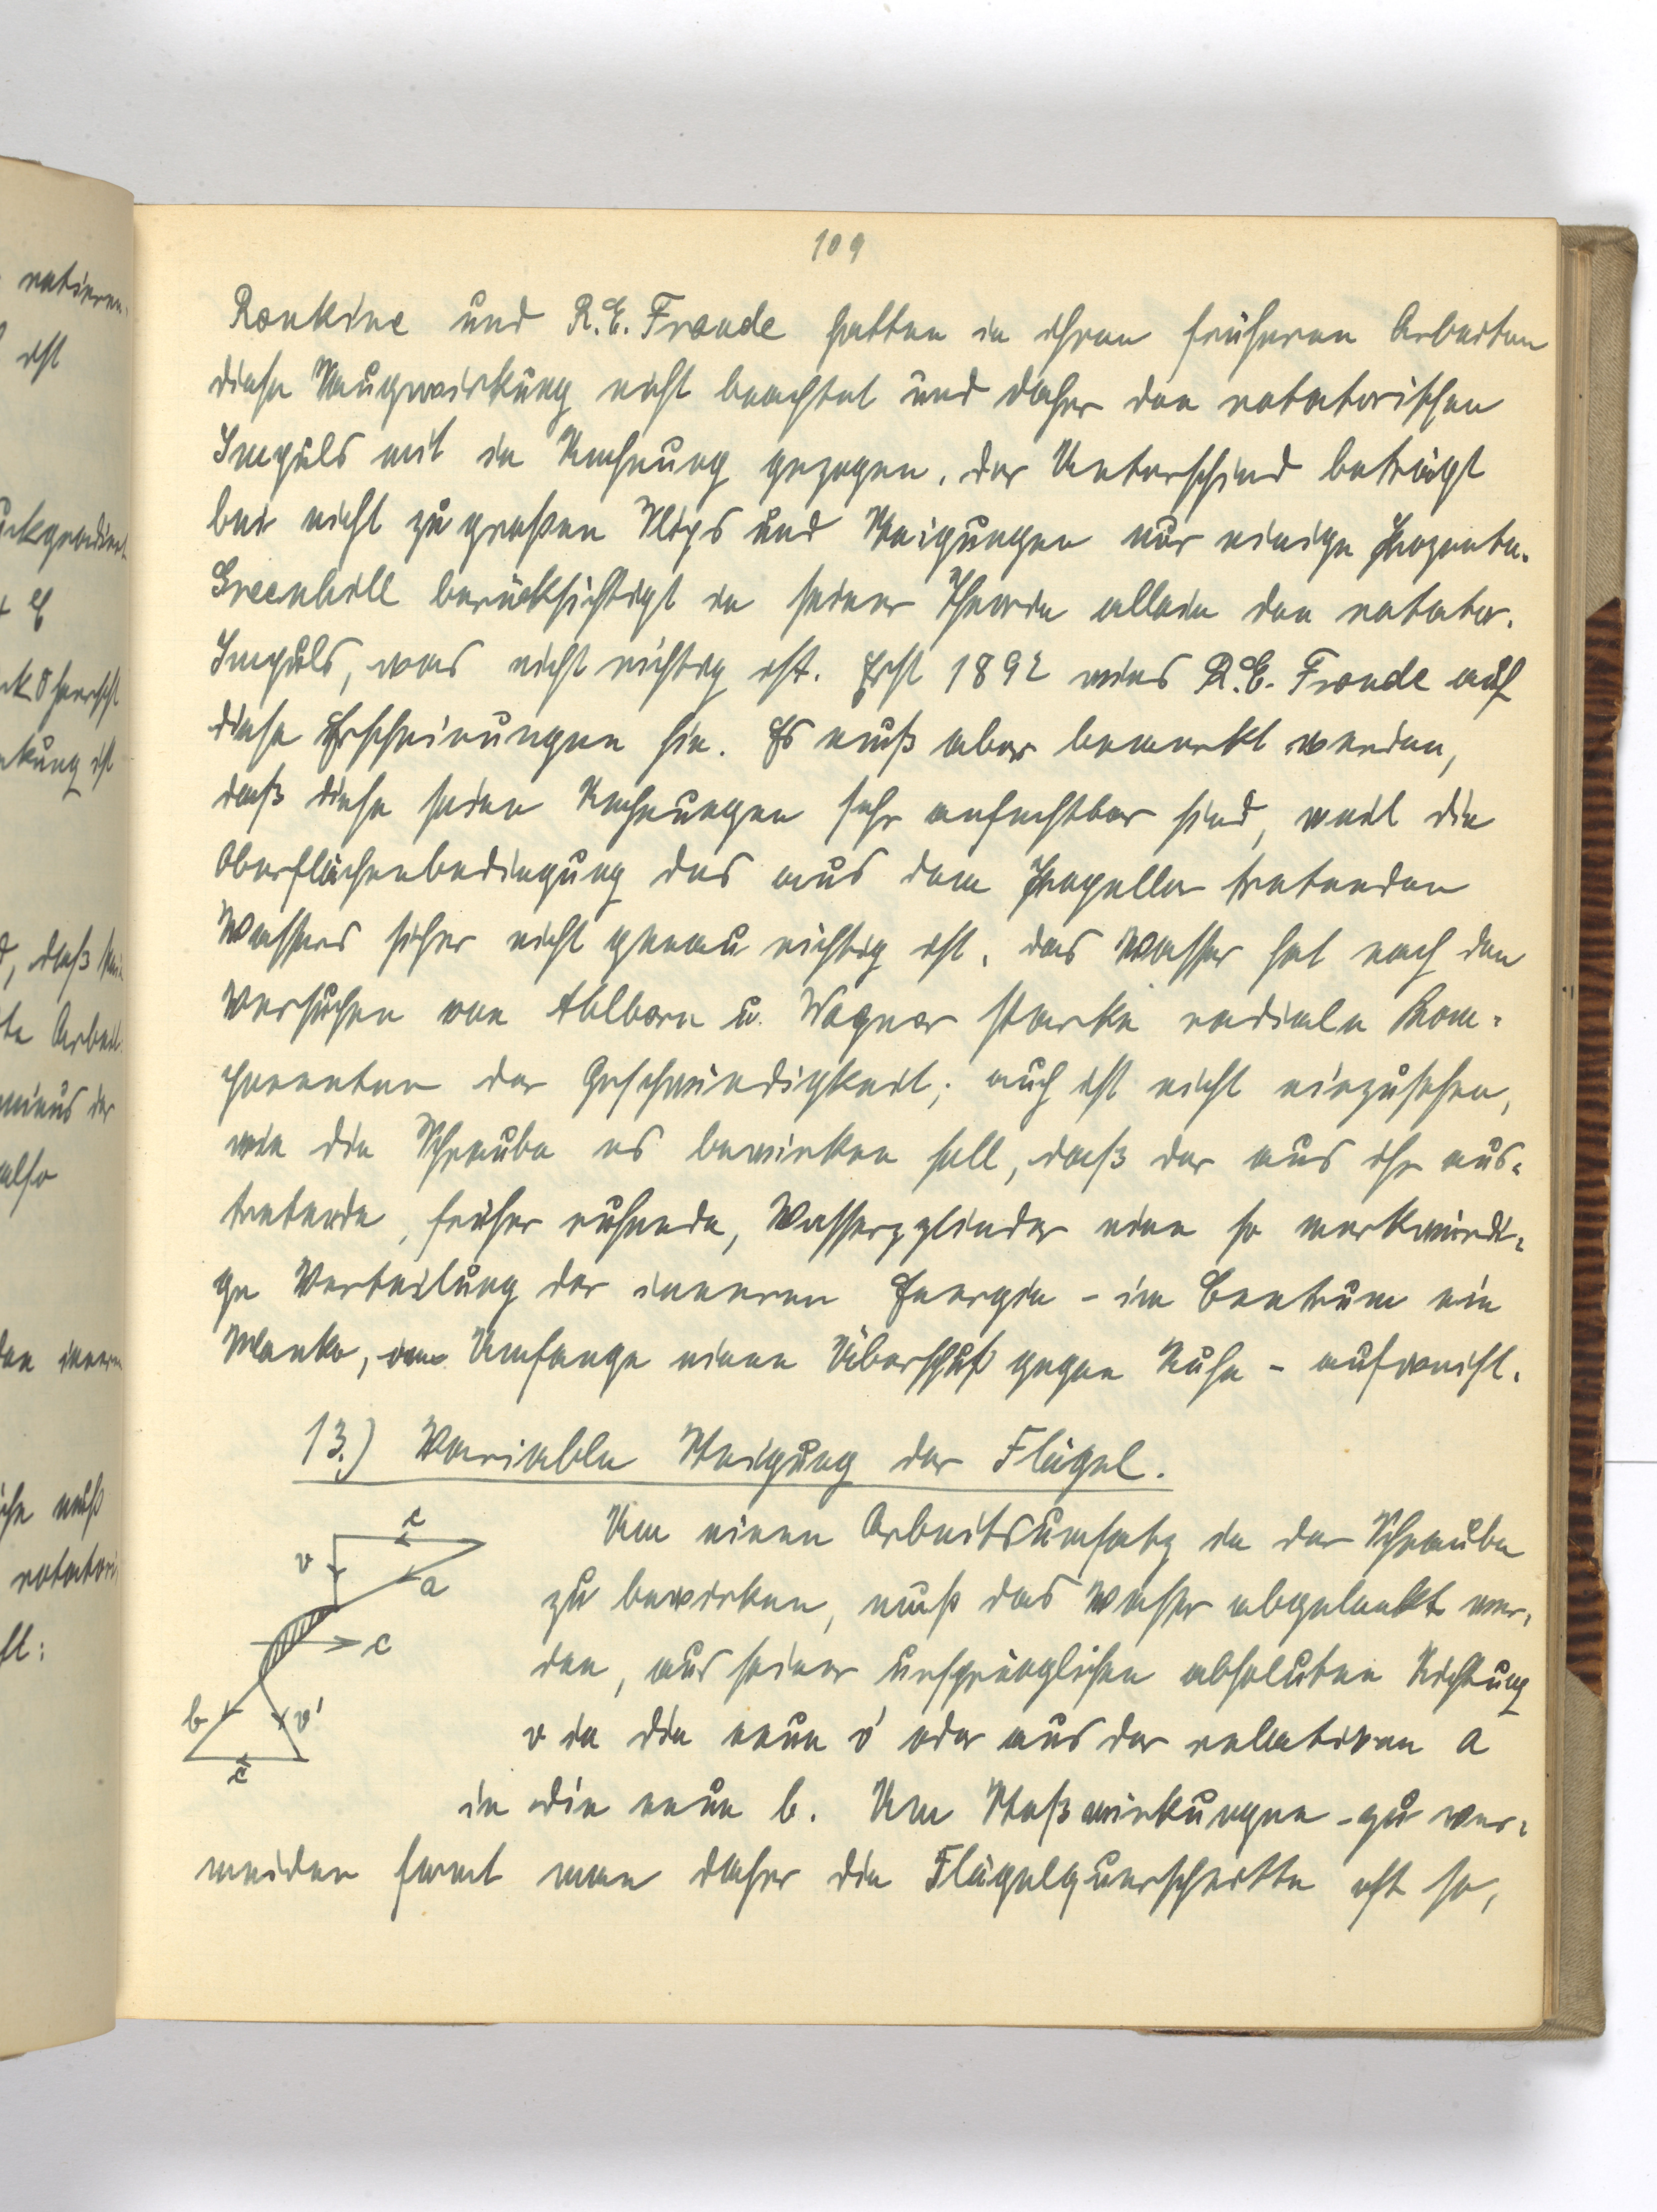 109
Rankine und R.E. Froude hatten in ihren früheren Arbeiten
diese Saugwirkung nicht beachtet und daher den rotatorischen
Impuls mit in Rechnung gezogen. Der Unterschied beträgt
bei nicht zu großen Slips und Steigungen nur einige Prozente.
Greenhill berücksichtigt in seiner Theorie allein den rotator.
Impuls, was nicht richtig ist. Erst 1892 wies R.E. Froude auf
diese Erscheinungen hin. Es muß aber bemerkt werden,
daß diese seine Rechnungen sehr anfechtbar sind, weil die
Oberflächenbedingung des aus dem Propeller tretenden
Wassers sicher nicht genau richtig ist. Das Wasser hat nach den
Versuchen von Ahlborn u. Wagner starke radiale Kom-
ponenten der Geschwindigkeit; auch ist nicht einzusehen,
wie die Schraube es bewirken soll, daß der aus ihr aus-
tretende, früher ruhende, Wasserzylinder eine so merkwürdi-
ge Verteilung der inneren Energie - im Centrum ein
Manko, am Umfange einen Überschuß gegen Ruhe - aufweist.
13.) Variable Steigung der Flügel.
Um einen Arbeitsumsatz in der Schraube
zu bewirken, muß das Wasser abgelenkt wer-
den, aus seiner ursprünglichen absoluten Richtung
v in die neue v' oder aus der relativen a
in die neue b. Um Stoßwirkungen zu ver-
meiden formt man daher die Flügelquerschnitte oft so,
c
v
a
c
b
v'
c
rotieren-
ist
ist
d, daß
te Arbeit
minus der
also
muß